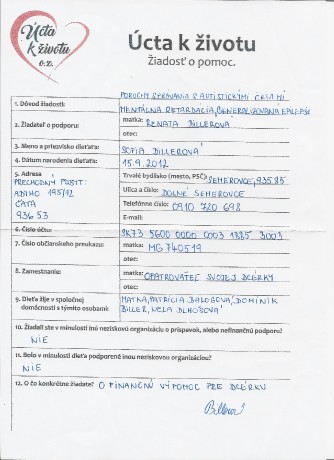 Úcta
k životu
o.z.
Úcta k životu
Žiadosť o pomoc.
PORUCHY SPRÁVANIA S AUTISTICKÝMI ČRTAMI
1. Dôvod žiadosti:
MENTÁLNA RETARDÁCIA, GENERALIZOVANÁ EPILEPSIE
2. Žiadateľ o podporu:
matka: RENATA BILLEROVÁ
otec:
3. Meno a priezvisko dieťaťa:
SOFIA BILLEROVÁ
4. Dátum narodenia dieťaťa:
15.9.2012
5. Adresa
PRECHODNÝ POBYT:
195/12
ČATA
936 53
Trvalé bydlisko (mesto, PSČ): SEMEROVCE, 93585
Ulica a číslo: DOLNÉ SEMEROVCE
Telefónne číslo: 0910 720 698
E-mail:
6. Číslo účtu:
SK73 5600 0000 0003 1885 3003
7. Číslo občianskeho preukazu:
matka: MG 740519
otec:
8. Zamestnanie:
matka: OPATROVATEĽ SVOJEJ DCÉRKY
otec:
9. Dieťa žije v spoločnej
domácnosti s týmito osobami:
MATKA, PATRÍCIA BALOGOVÁ, DOMINIK
BILLER, NELA DLHOŠOVÁ
10. Žiadali ste v minulosti inú neziskovú organizáciu o príspevok, alebo nefinančnú podporu?
NIE
11. Bolo v minulosti dieťa podporené inou neziskovou organizáciou?
NIE
12. O čo konkrétne žiadate? O FINANČNÚ VÝPOMOC PRE DCÉRKU